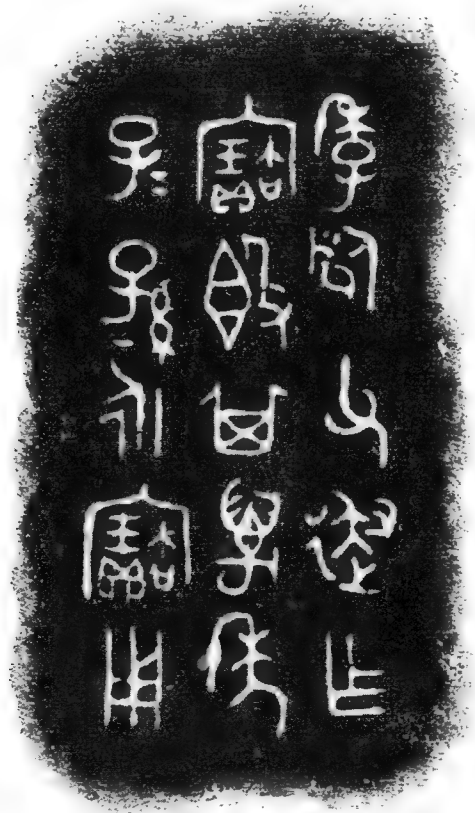 季父乍
寶𣪘其萬年
子=孫=永寶用